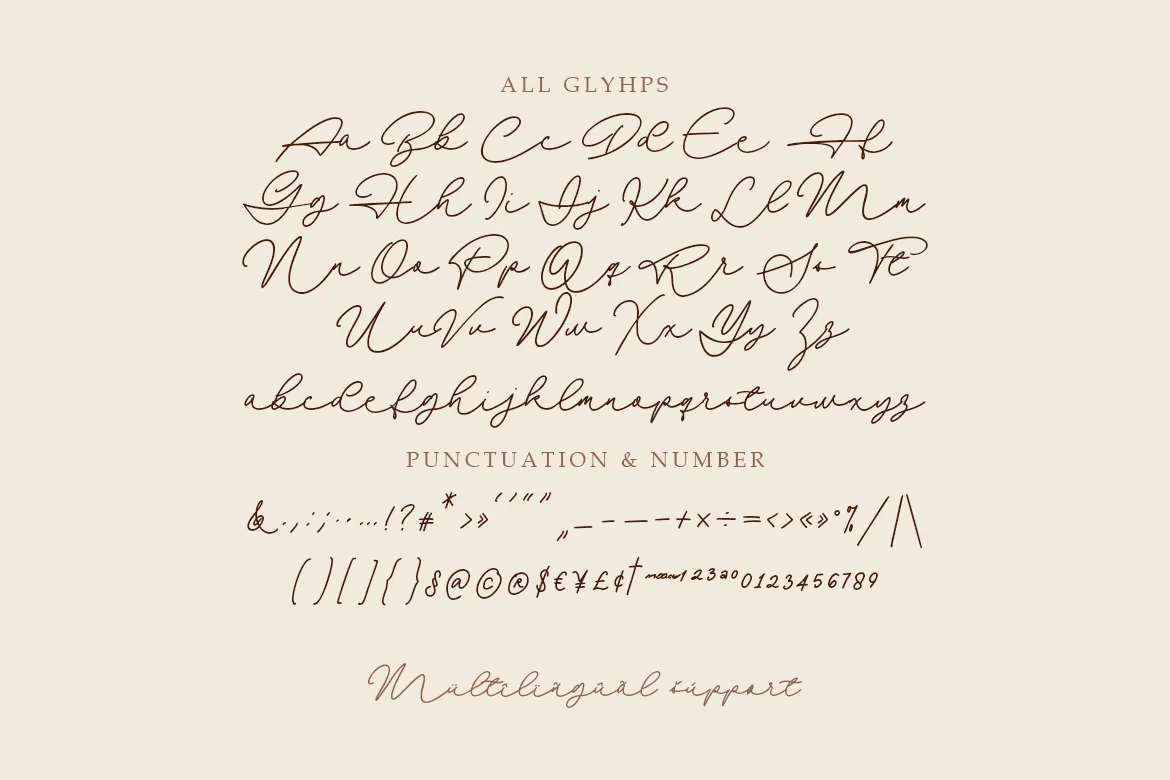 ALL GLYHPS
Aa Bb Cc Dd Ee Ff
Gg Hh Ii Jj Kk Ll Mm
Nn Oo Pp Qq Rr Ss Tt
Uu Vv Ww Xx Yy Zz
abcdefghijklmnopqrstuvwxyz
PUNCTUATION & NUMBER
&.,:;··...!?#*›»‘’“”„_-—-+×÷=<>«»°%/|\
()[]{}§@©®$€¥£¢† 123ao0123456789
Mültílïñgūãl šúppört